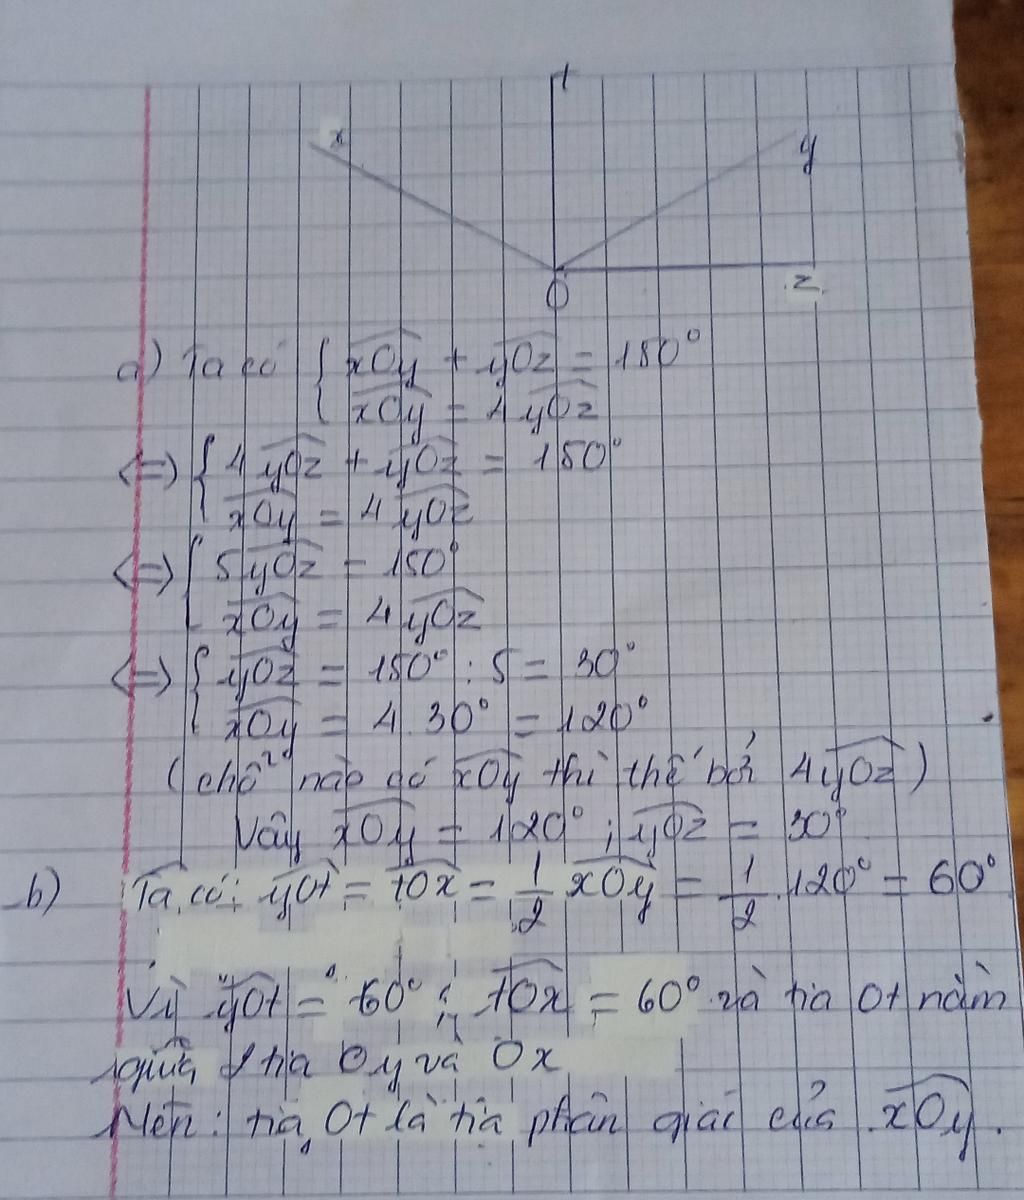 t
x
y
O
z
a) Ta có { xOy + yOz = 150°
xOy = 4 yOz
<=> { 4 yOz + yOz = 150°
xOy = 4 yOz
<=> { 5 yOz = 150°
xOy = 4 yOz
<=> { yOz = 150° : 5 = 30°
xOy = 4. 30° = 120°
(chỗ nào có xOy thì thế bởi 4 yOz)
Vậy xOy = 120° ; yOz = 30°
b) Ta có: yOt = tOx = 1/2 xOy = 1/2 . 120° = 60°
Vì yOt = 60° ; tOx = 60° và tia Ot nằm
giữa 2 tia Oy và Ox
Nên: tia Ot là tia phân giác của xOy.